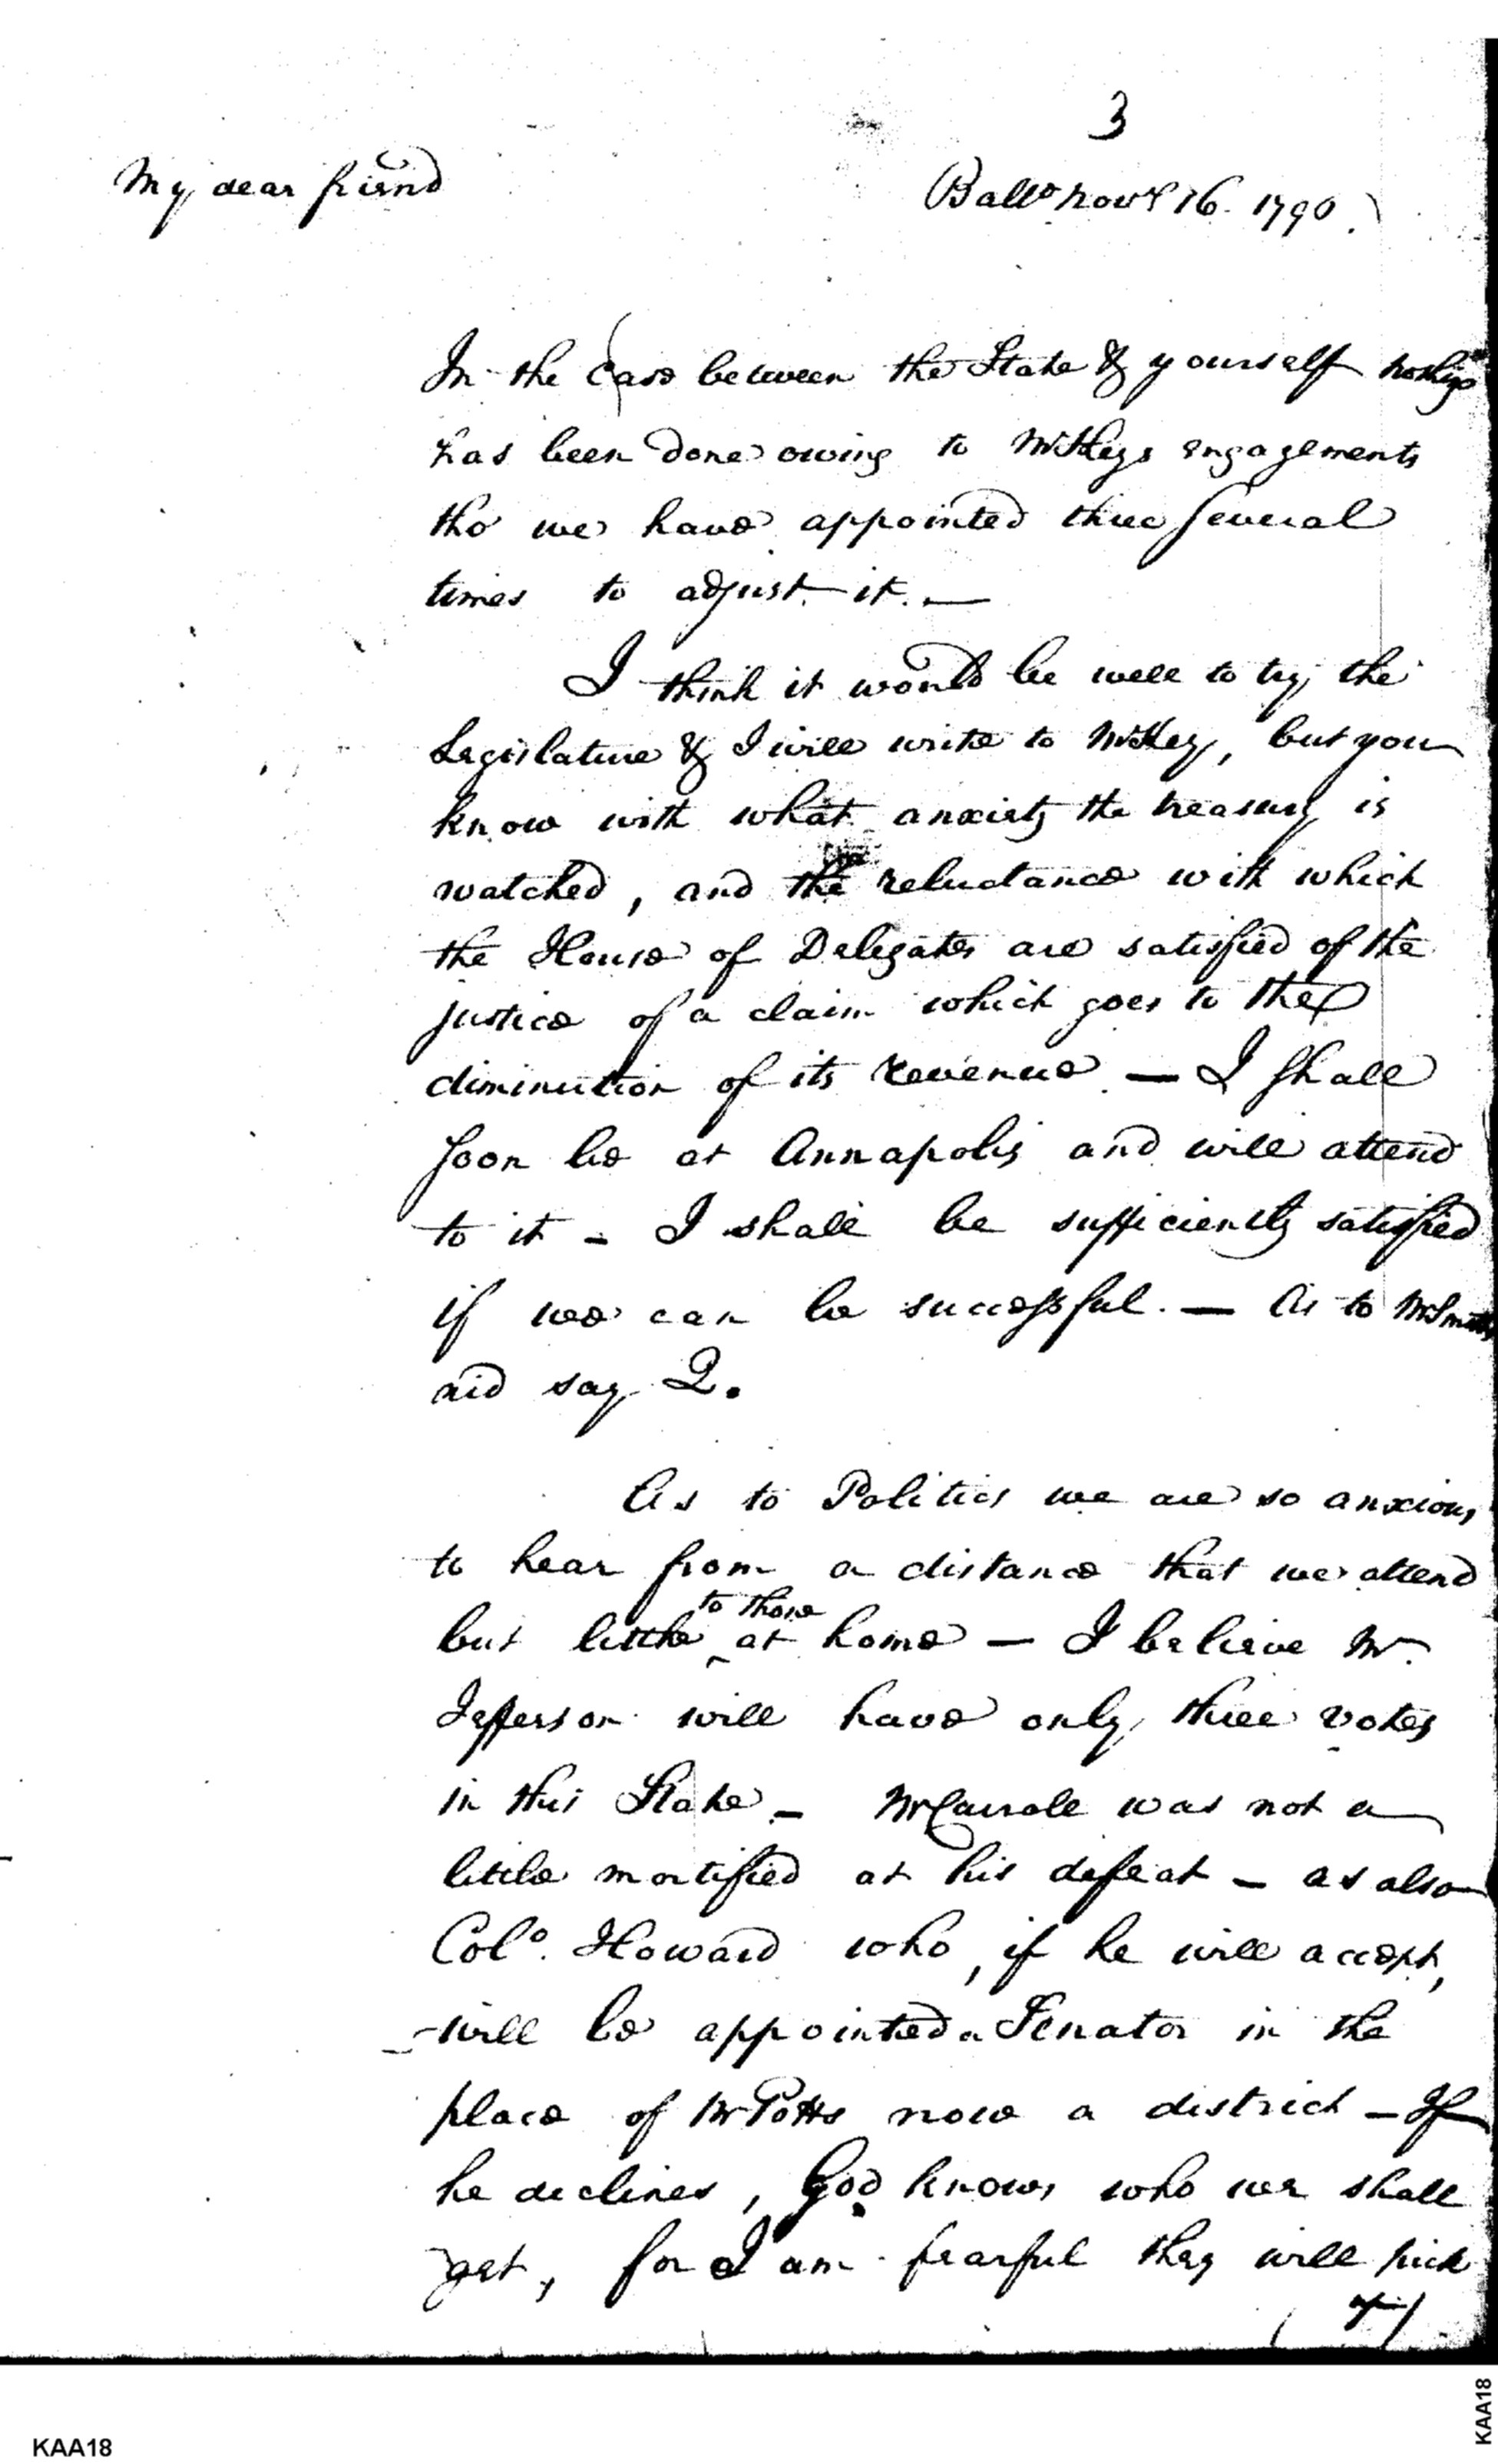 3
My dear friend
Balto Novr 16. 1790.
In the Case between the State & yourself nothing
has been done owing to Mr Keys engagements
tho we have appointed three several
times to adjust it. —
I think it would be well to try the
Legislature & I will write to Mr Key, but you
know with what anxiety the treasury is
watched, and the reluctance with which
the House of Delegates are satisfied of the
justice of a claim which goes to the
diminution of its revenue — I shall
soon be at Annapolis and will attend
to it – I shall be sufficiently satisfied
if we can be successful. — As to Mr Smiths
aid say 2.
As to Politics we are so anxious
to hear from a distance that we attend
but little ^to those at home — I believe Mr.
Jefferson will have only three votes
in this State – Mr Carroll was not a
little mortified at his defeat – as also
Colo. Howard who, if he will accept,
will be appointed a Senator in the
place of Mr Potts now a district – If
he declines, God knows who we shall
get, for I am fearful they will pick
KAA18
KAA18